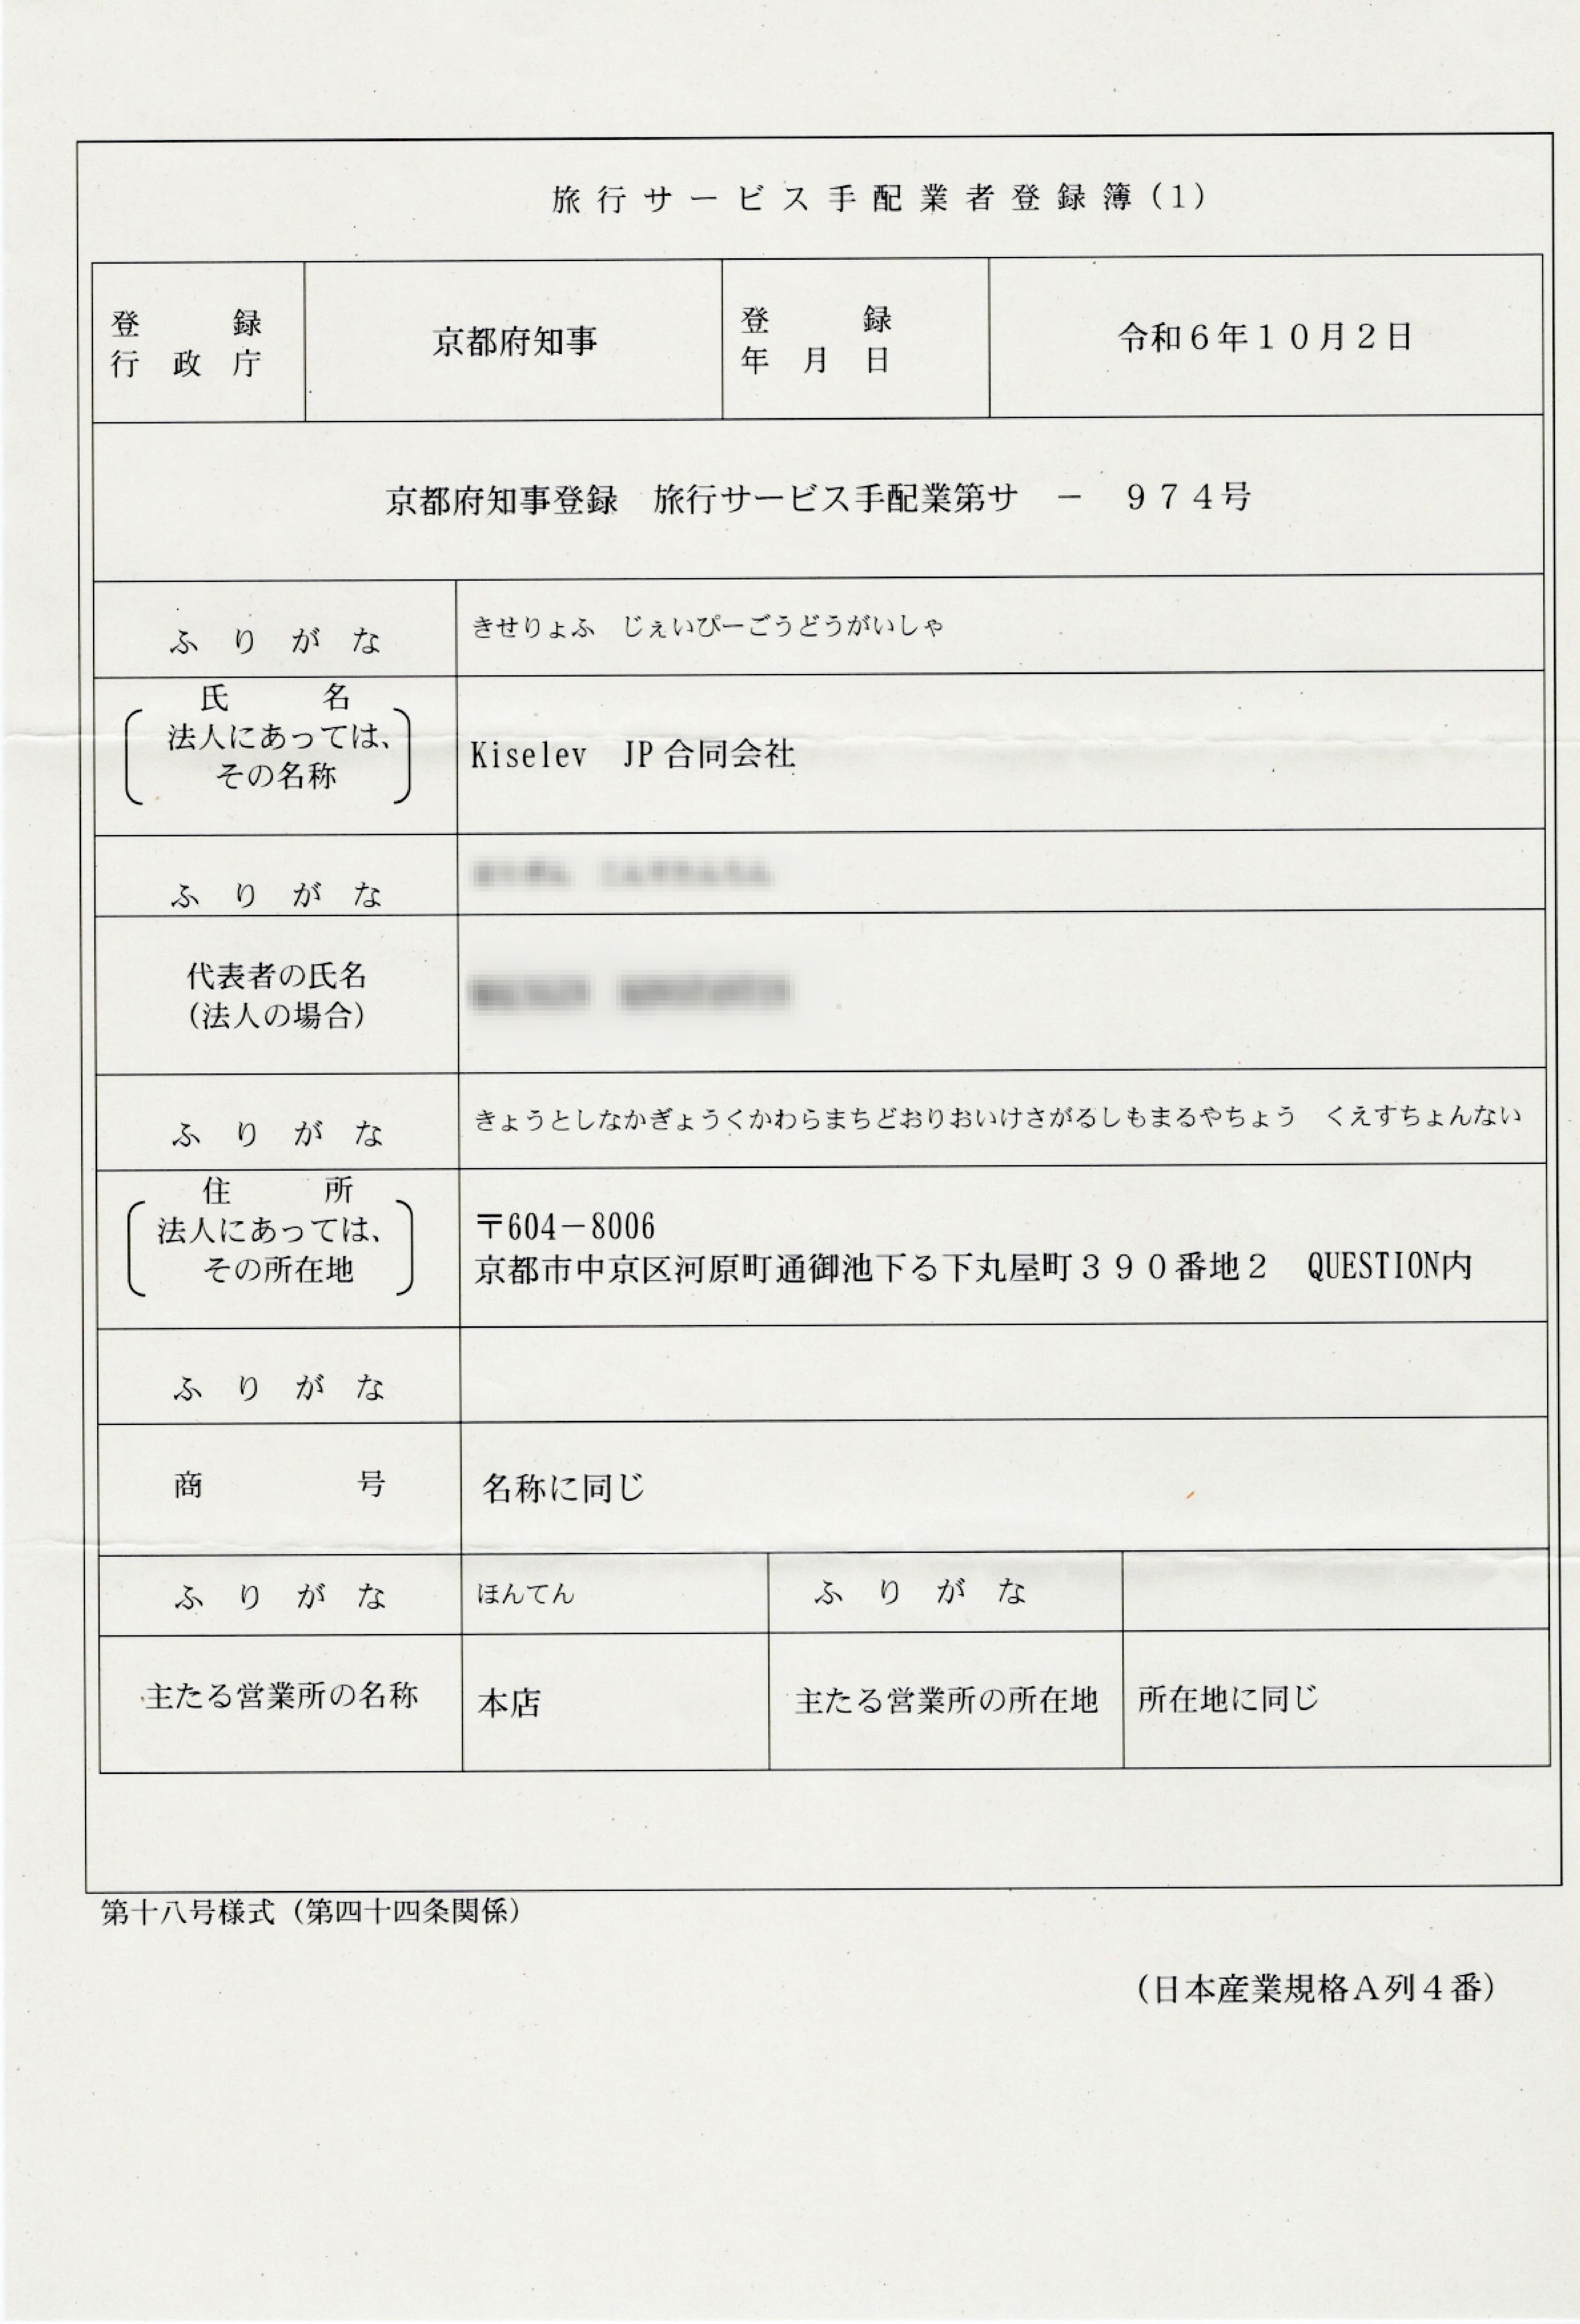 旅行サービス手配業者登録簿(1)
登録行政庁 京都府知事 登録年月日 令和6年10月2日
京都府知事登録　旅行サービス手配業第サ　－　974号
ふりがな きせりょふ　じぇいぴーごうどうがいしゃ
氏名
法人にあっては、
その名称
Kiselev　JP合同会社
ふりがな
代表者の氏名
(法人の場合)
ふりがな きょうとしなかぎょうくかわらまちどおりおいけさがるしもまるやちょう　くえすちょんない
住所
法人にあっては、
その所在地
〒604－8006
京都市中京区河原町通御池下る下丸屋町390番地2　QUESTION内
ふりがな
商号 名称に同じ
ふりがな ほんてん ふりがな
主たる営業所の名称 本店 主たる営業所の所在地 所在地に同じ
第十八号様式（第四十四条関係）
（日本産業規格A列4番）